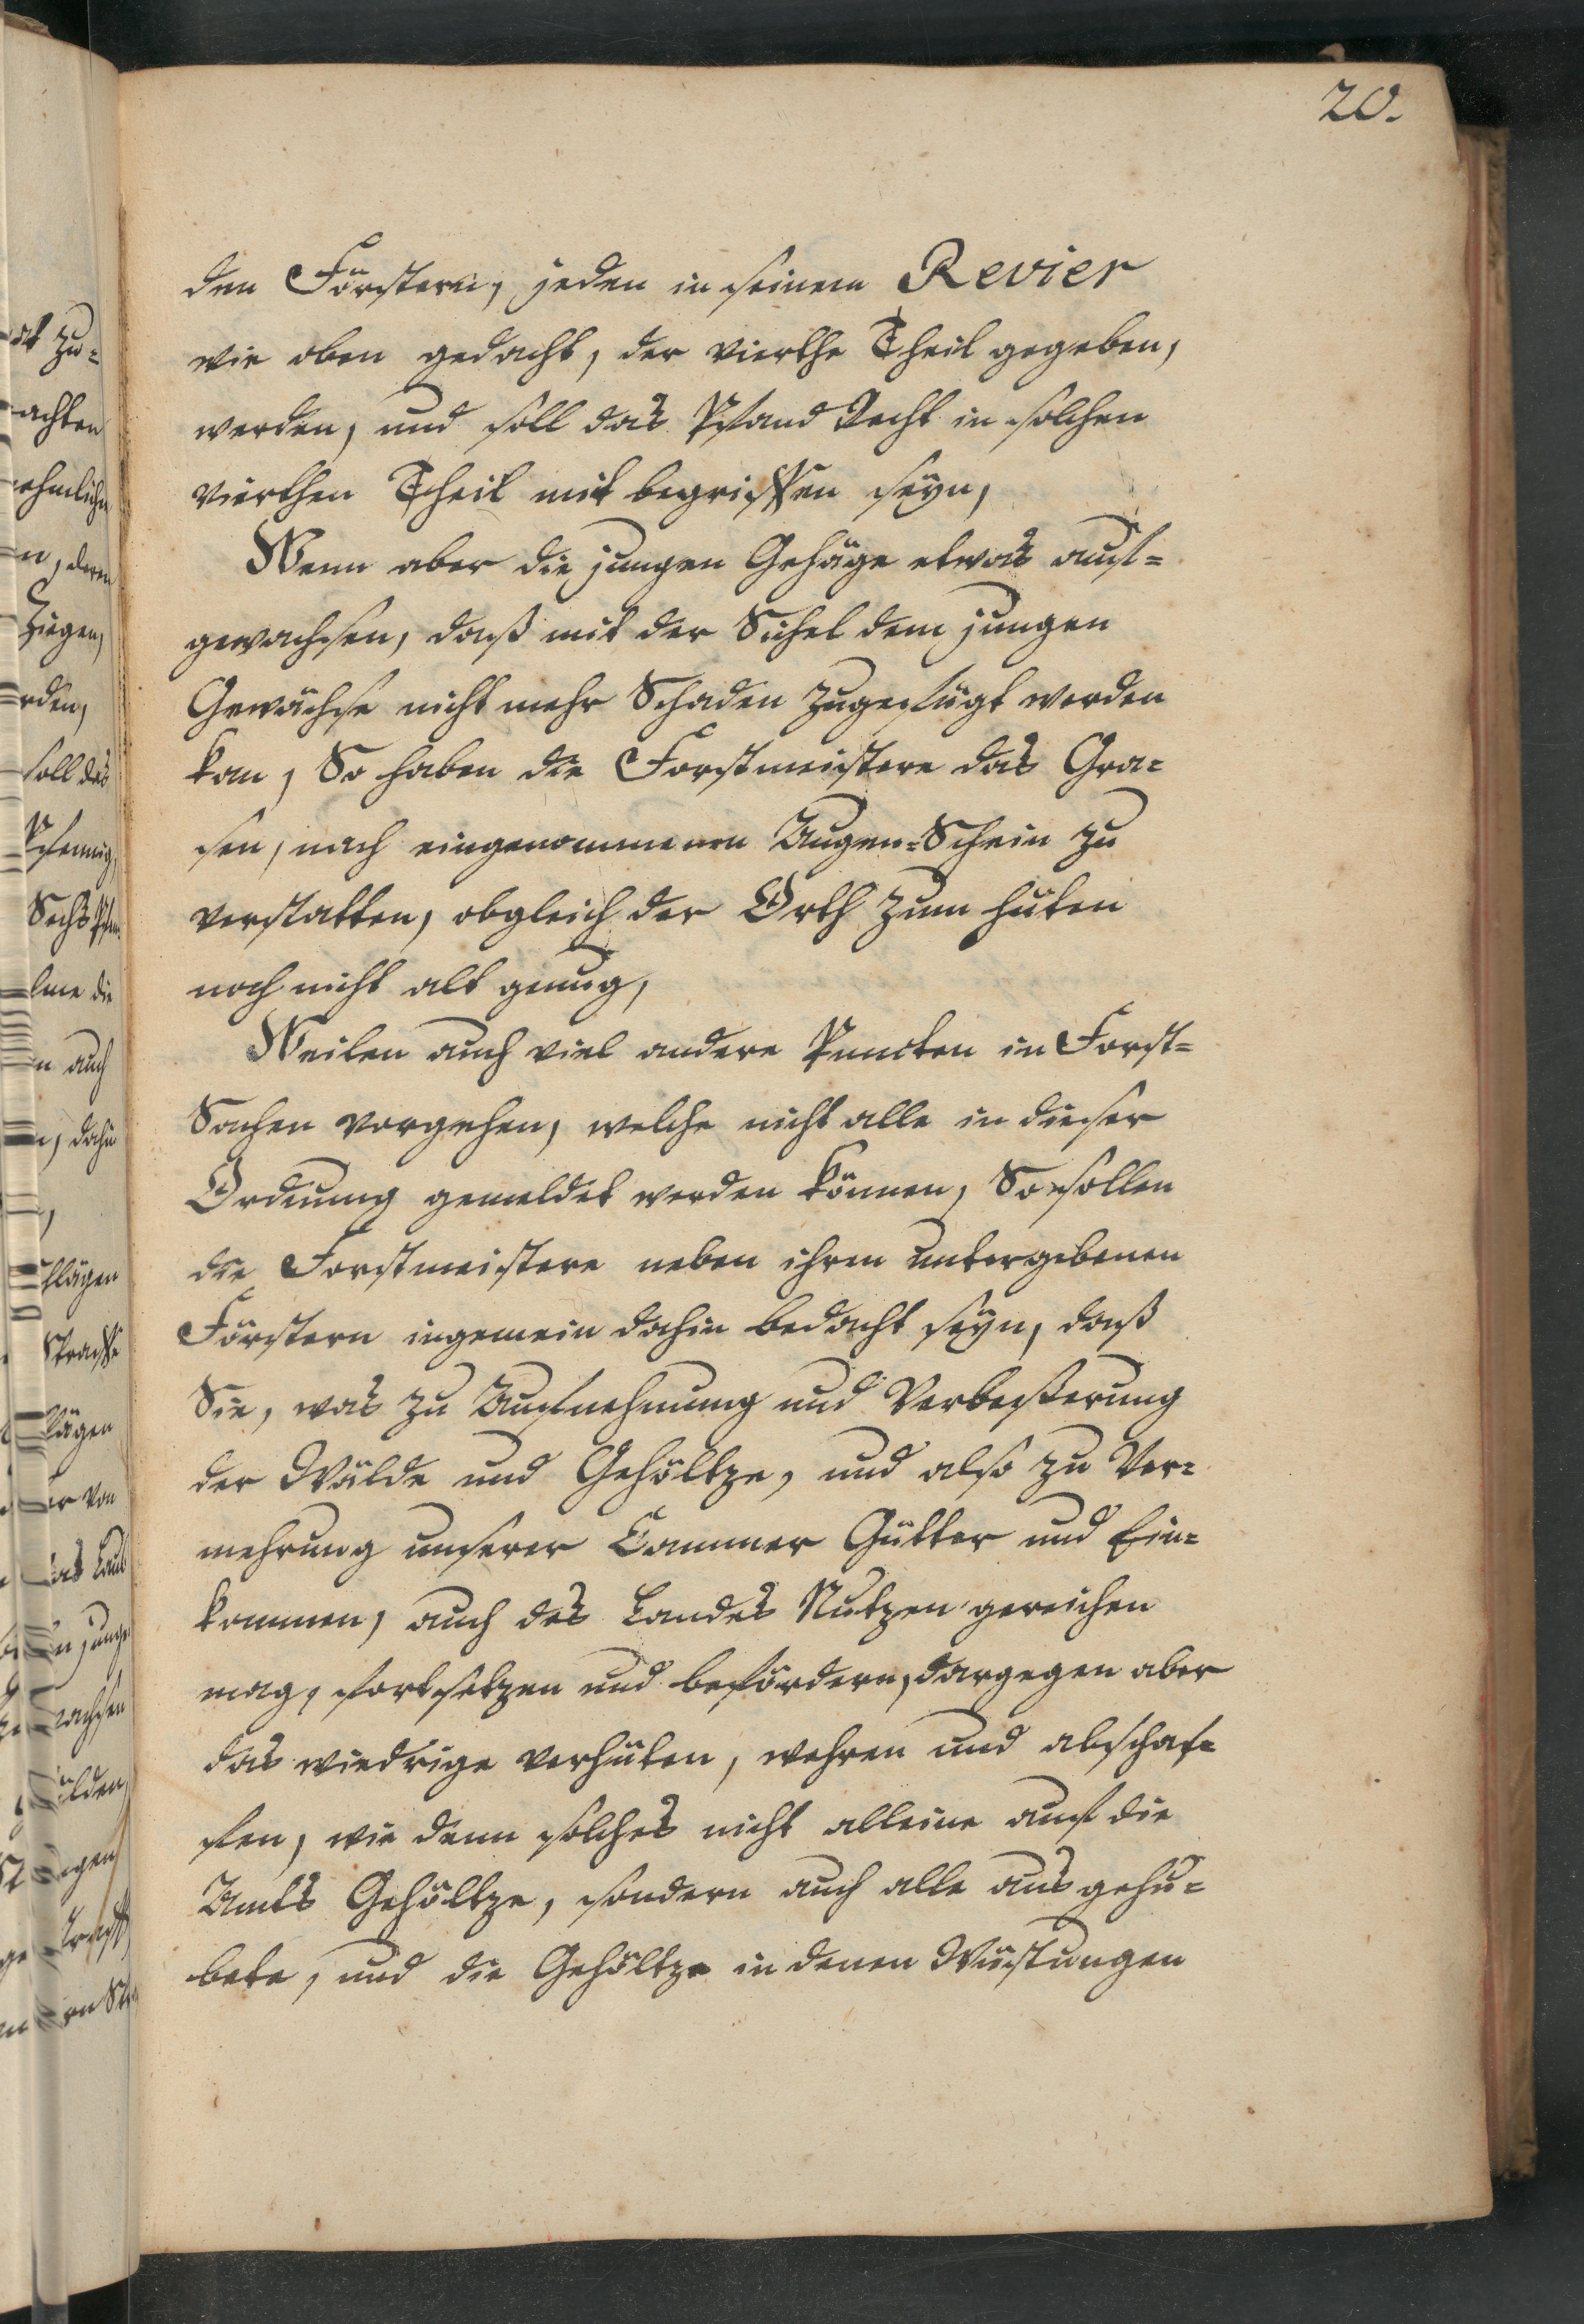 20.
den Förstern, jeden in seinem Revier
wie oben gedacht, der vierthe Theil gegeben,
werden, und soll das Pfand Recht in solchen
vierthen Theil mit begriffen seyn,
Wenn aber die jungen Gehäge etwas auf=
gewachsen, daß mit der Sichel dem jungen
Gewächse nicht mehr Schaden zugefügt werden
kan, So haben die Forstmeistere das Gra=
sen, nach eingenommenen Augen=Schein zu
verstatten, obgleich der Orth zum hüten
noch nicht alt genug,
Weilen auch viel andere Puncten in Forst=
Sachen vorgehen, welche nicht alle in dieser
Ordnung gemeldet werden können, So sollen
die Forstmeistere neben ihren untergebenen
Förstern ingemein dahin bedacht seyn, daß
Sie, was zu Aufnehmung und Verbeßerung
der Wälde und Gehöltze, und also zu Ver=
mehrung unserer Cammer Gütter und Ein=
kommen, auch des Landes Nutzen gereichen
mag, fortsetzen und befördern, dargegen aber
das wiedrige verhüten, wehren und abschaf=
fen, wie denn solches nicht alleine auf die
Amts Gehöltze, sondern auch alle aus gehu=
bete, und die Gehöltze in denen Wüstungen